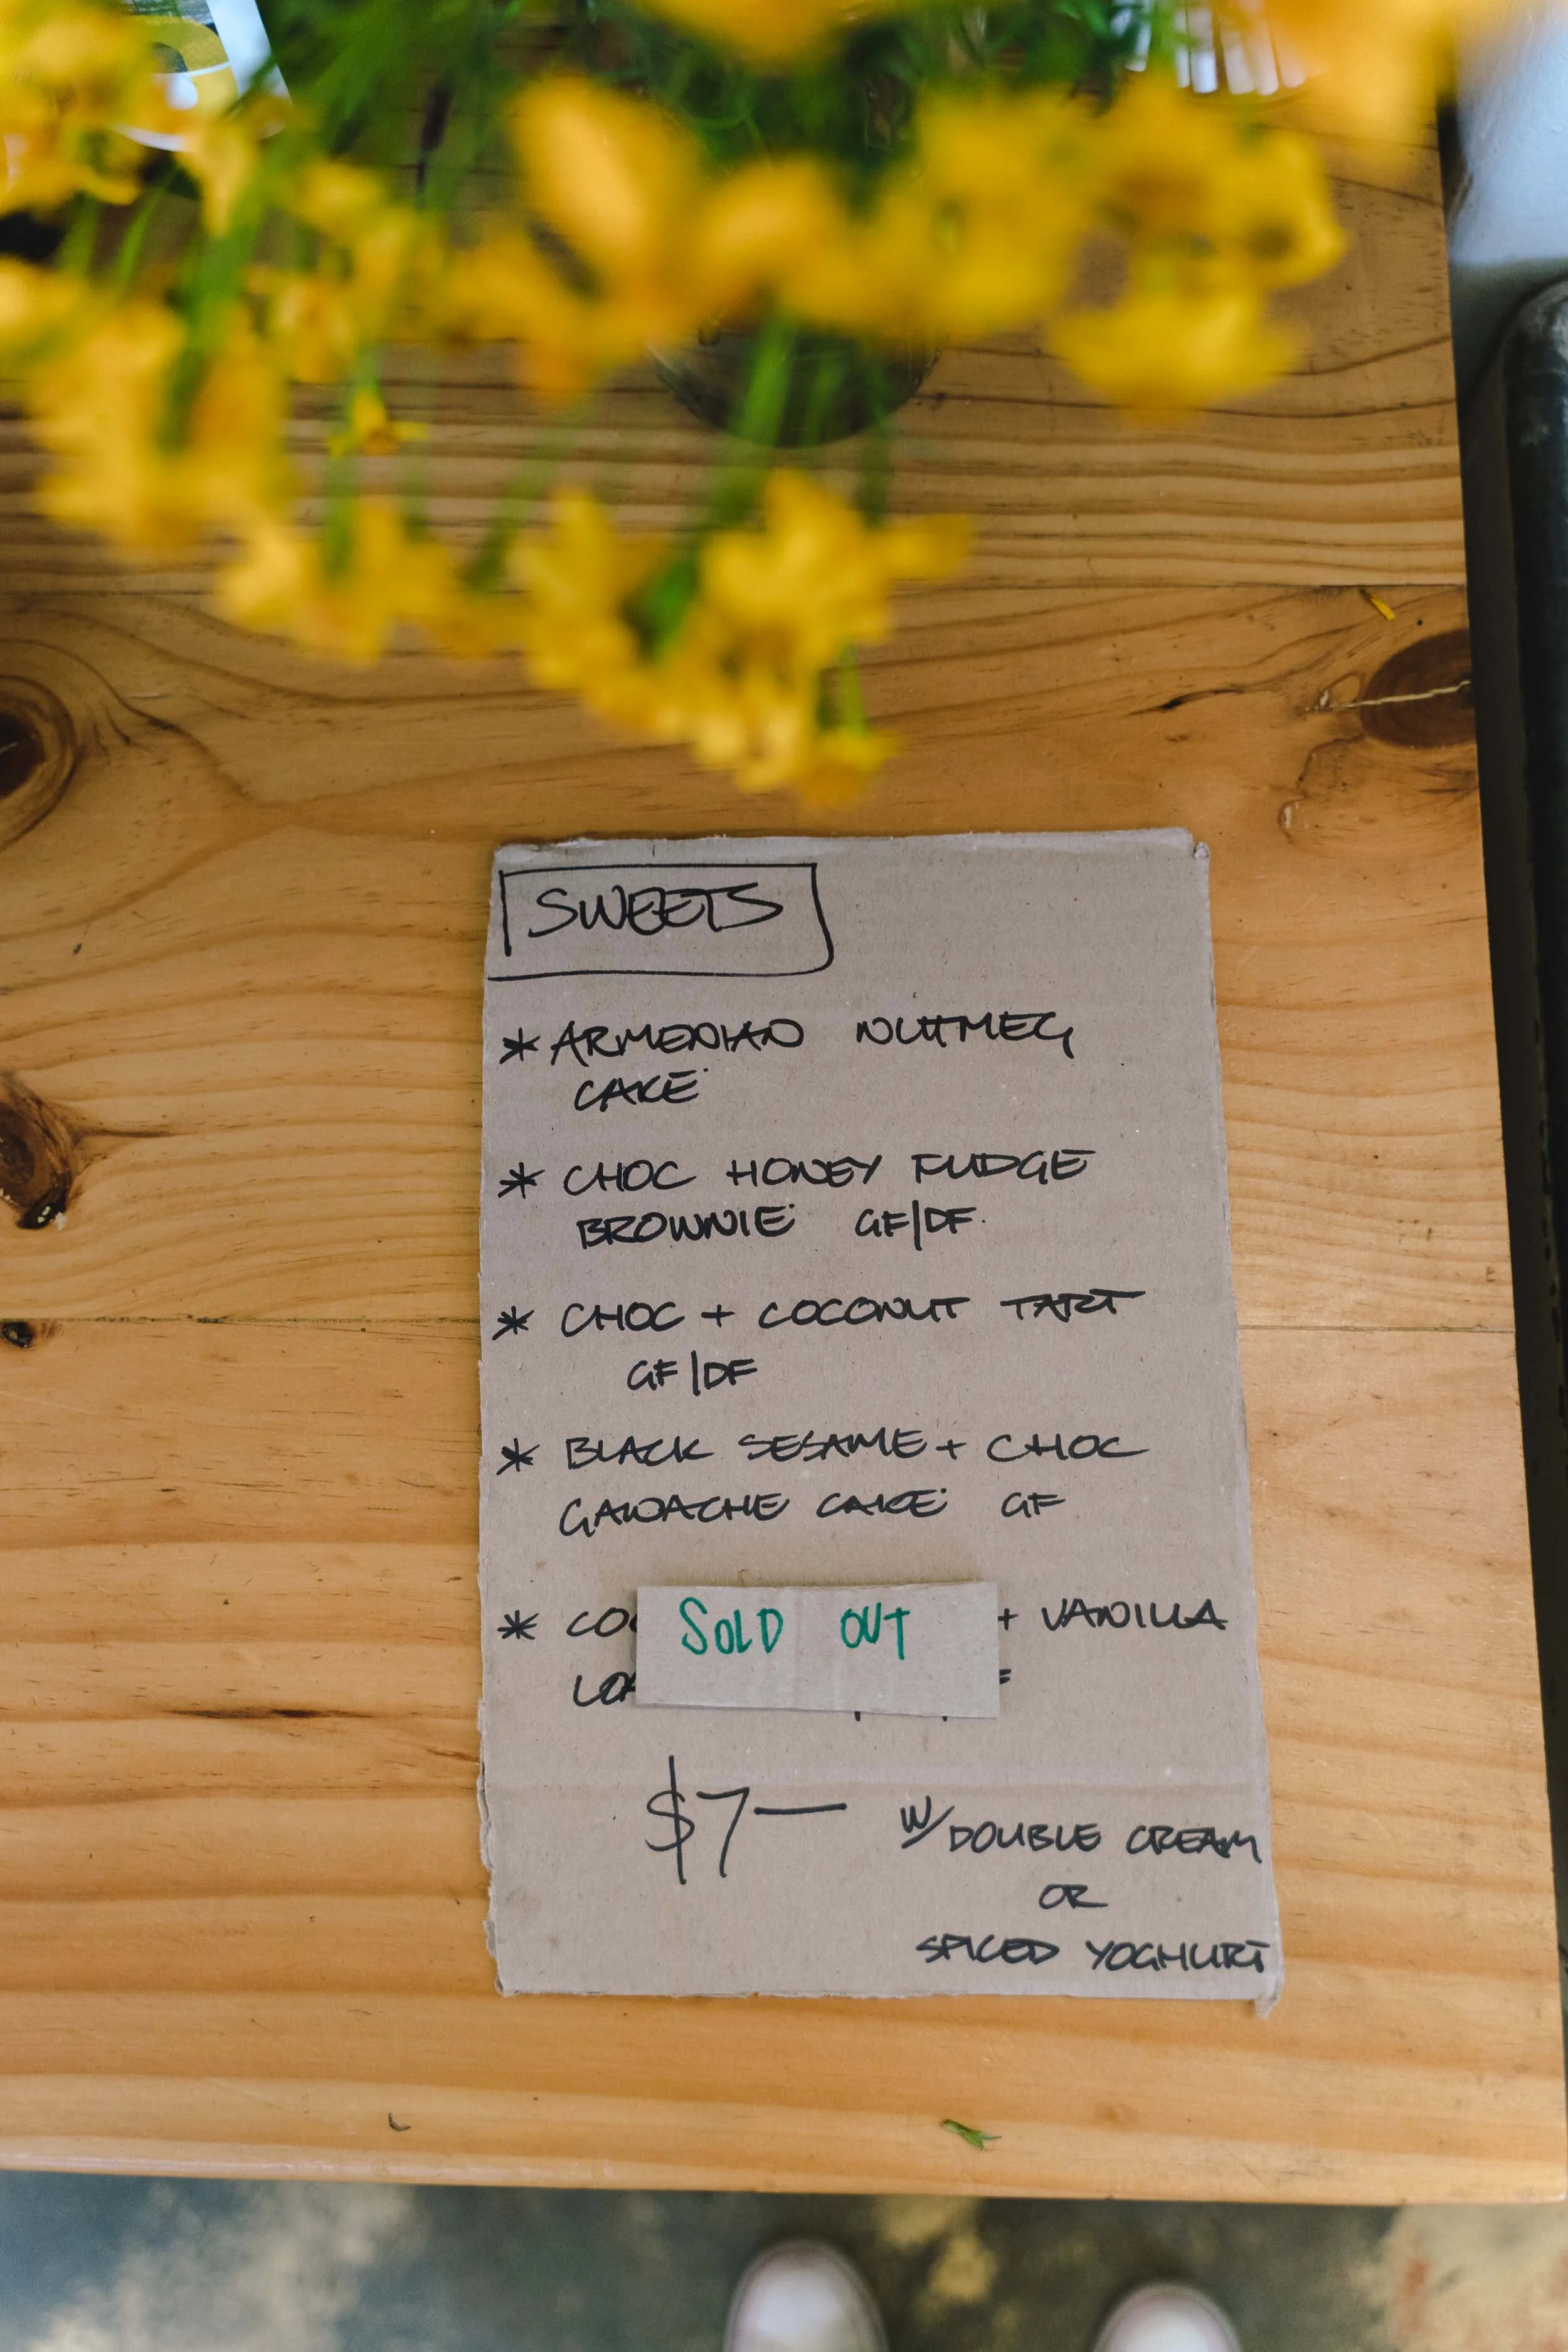 SWEETS
* ARMENIAN NUTMEG
CAKE
* CHOC HONEY FUDGE
BROWNIE GF/DF.
* CHOC + COCONUT TART
GF/DF
* BLACK SESAME + CHOC
GANACHE CAKE GF
* SOLD OUT + VANILLA
$7— W/ DOUBLE CREAM
OR
SPICED YOGHURT